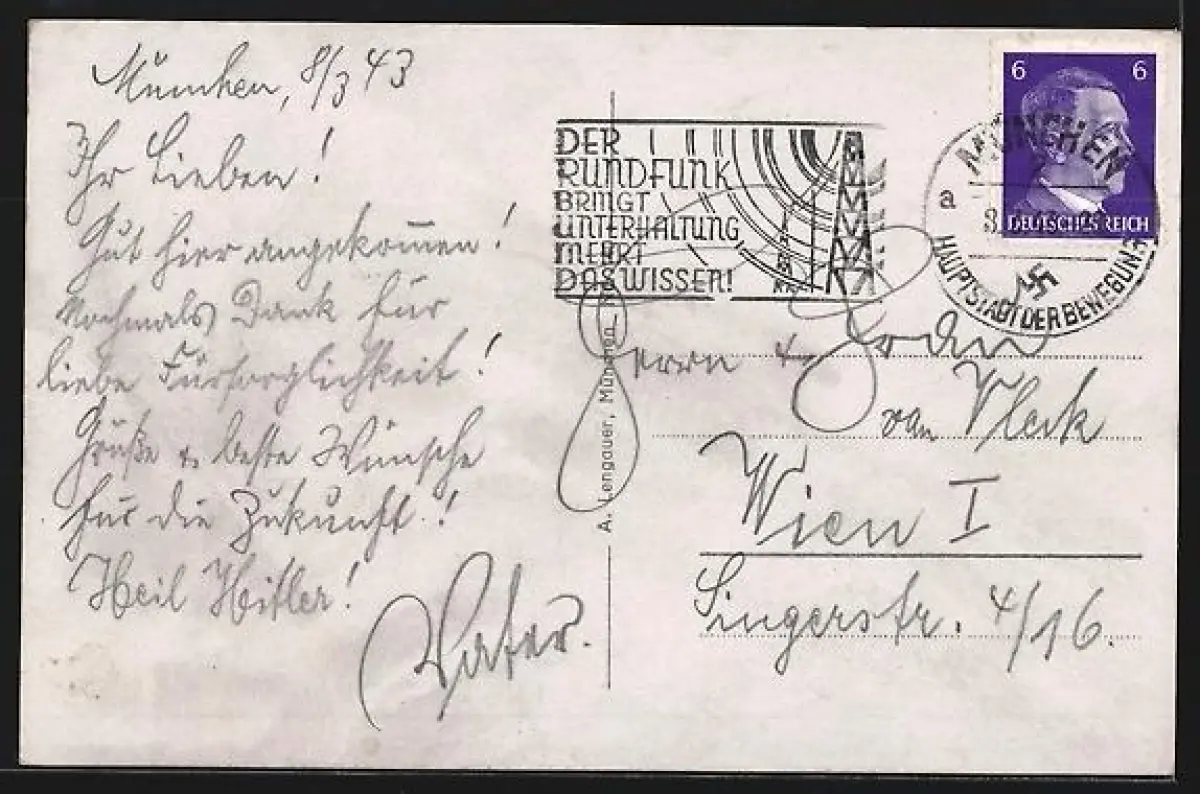 München, 8/3 43
Ihr Lieben!
Gut hier angekommen!
Nochmals Dank für
liebe Fürsorglichkeit!
Grüße & beste Wünsche
für die Zukunft!
Heil Hitler!
Vater.
DER
RUNDFUNK
BRINGT
UNTERHALTUNG
MEHRT
DAS WISSEN!
6 6
DEUTSCHES REICH
MÜNCHEN
a
8.
HAUPTSTADT DER BEWEGUNG
A. Lengauer, München
Herrn &
van Vleck
Wien I
Singerstr. 4/16.